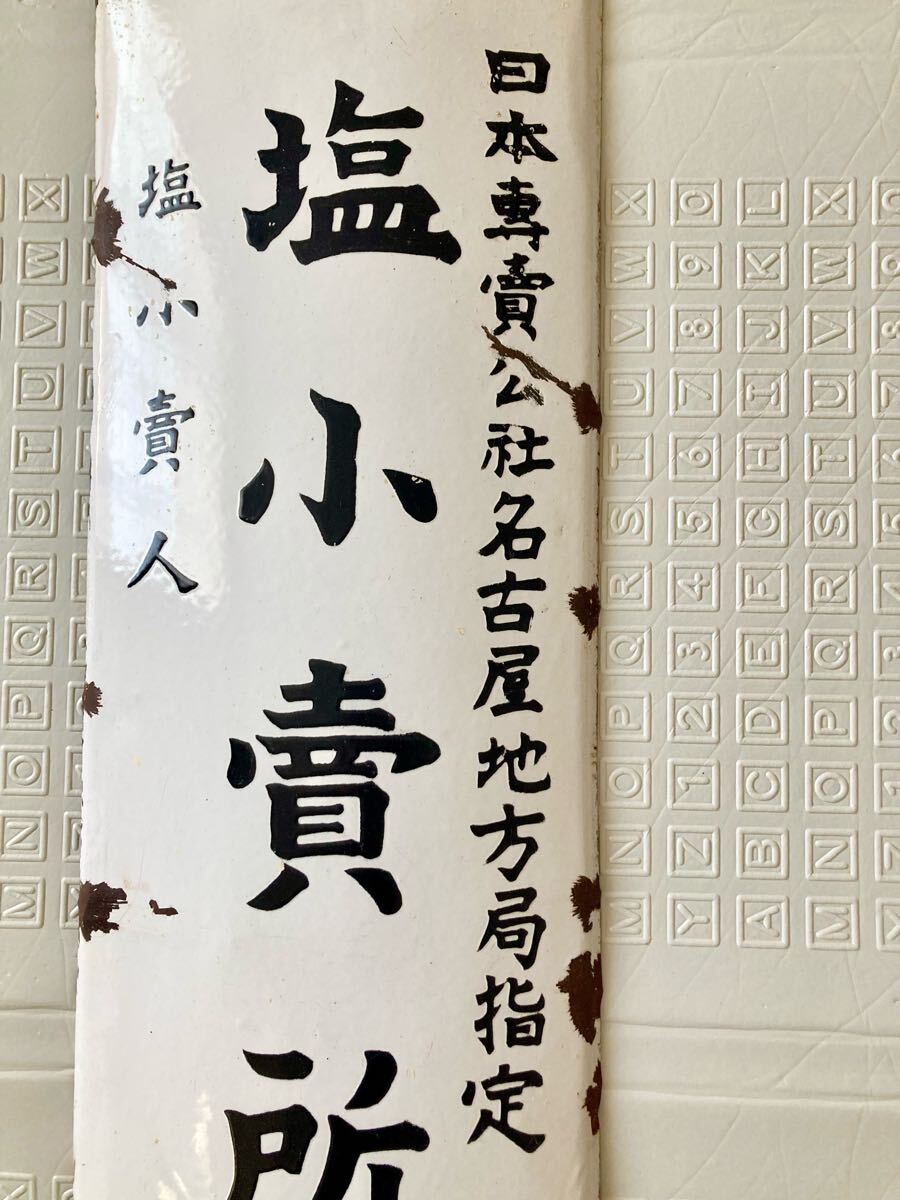 日本專賣公社名古屋地方局指定
塩小賣所
塩小賣人